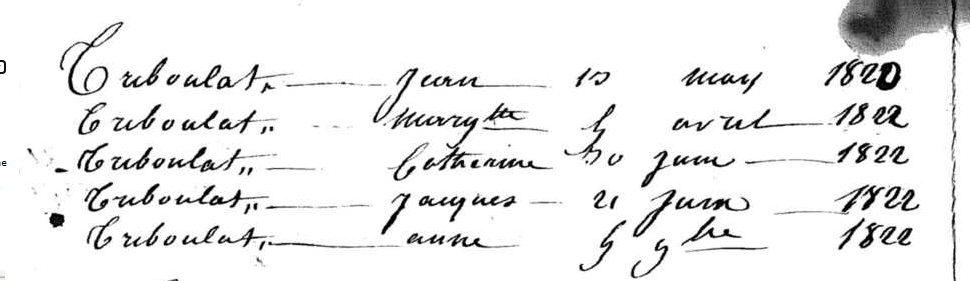 Triboulat, Jean 10 may 1820
Triboulat, avril 1822
Triboulat, Catherine juin 1822
Triboulat, Jacques 21 Juin 1822
Triboulat, anne 9bre 1822